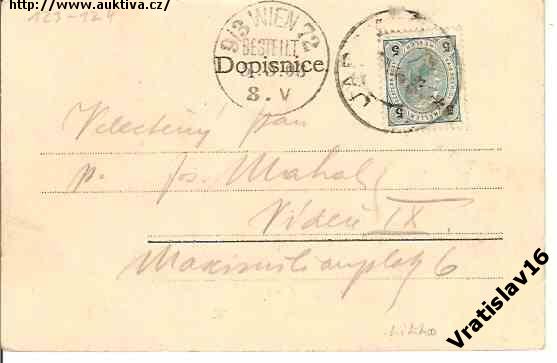 http://www.auktiva.cz/
123-124
9/3 WIEN 72
BESTELLT
8. V
Dopisnice
5 5
5 5
Velectěný pan
p. Jos. Mahal
Vídeň IX.
Maximilianplatz 6
Vratislav16